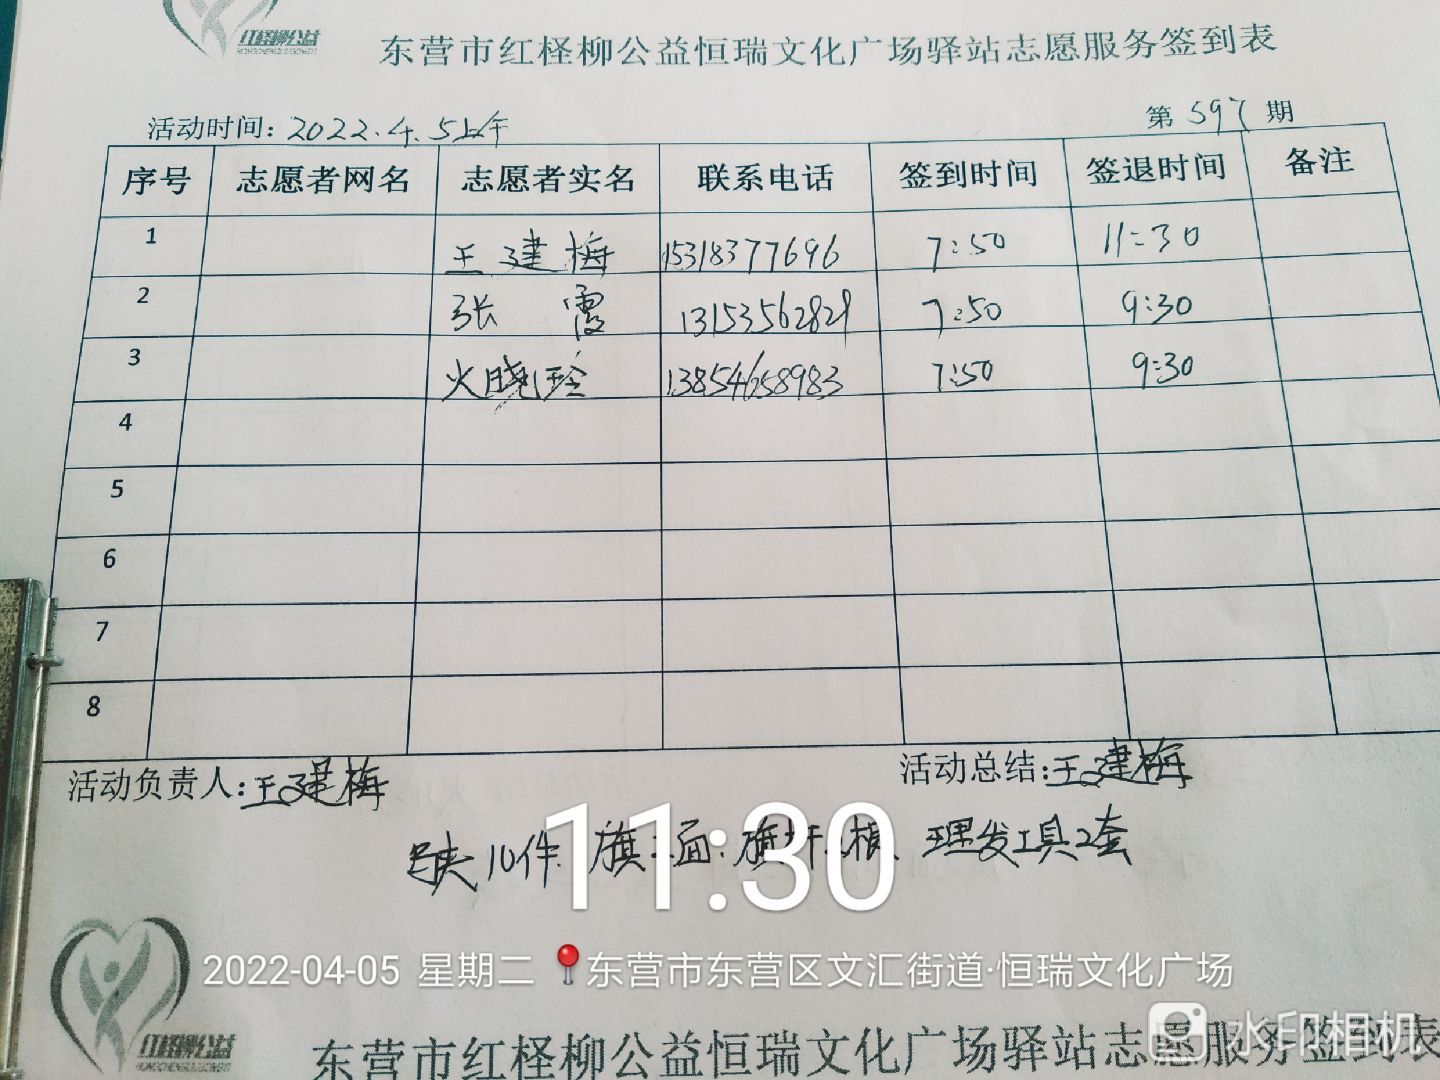 红柽柳公益
东营市红柽柳公益恒瑞文化广场驿站志愿服务签到表
活动时间：2022.4.5上午 第 597 期
序号 志愿者网名 志愿者实名 联系电话 签到时间 签退时间 备注
1 王建梅 15318377696 7:50 11:30
2 张霞 13153562829 7:50 9:30
3 火晓玲 13854658983 7:50 9:30
4
5
6
7
8
活动负责人：王建梅 活动总结：王建梅
10件 旗 面 理发工具2套
11:30
2022-04-05 星期二 东营市东营区文汇街道·恒瑞文化广场
水印相机
红柽柳公益
东营市红柽柳公益恒瑞文化广场驿站志愿服务签到表